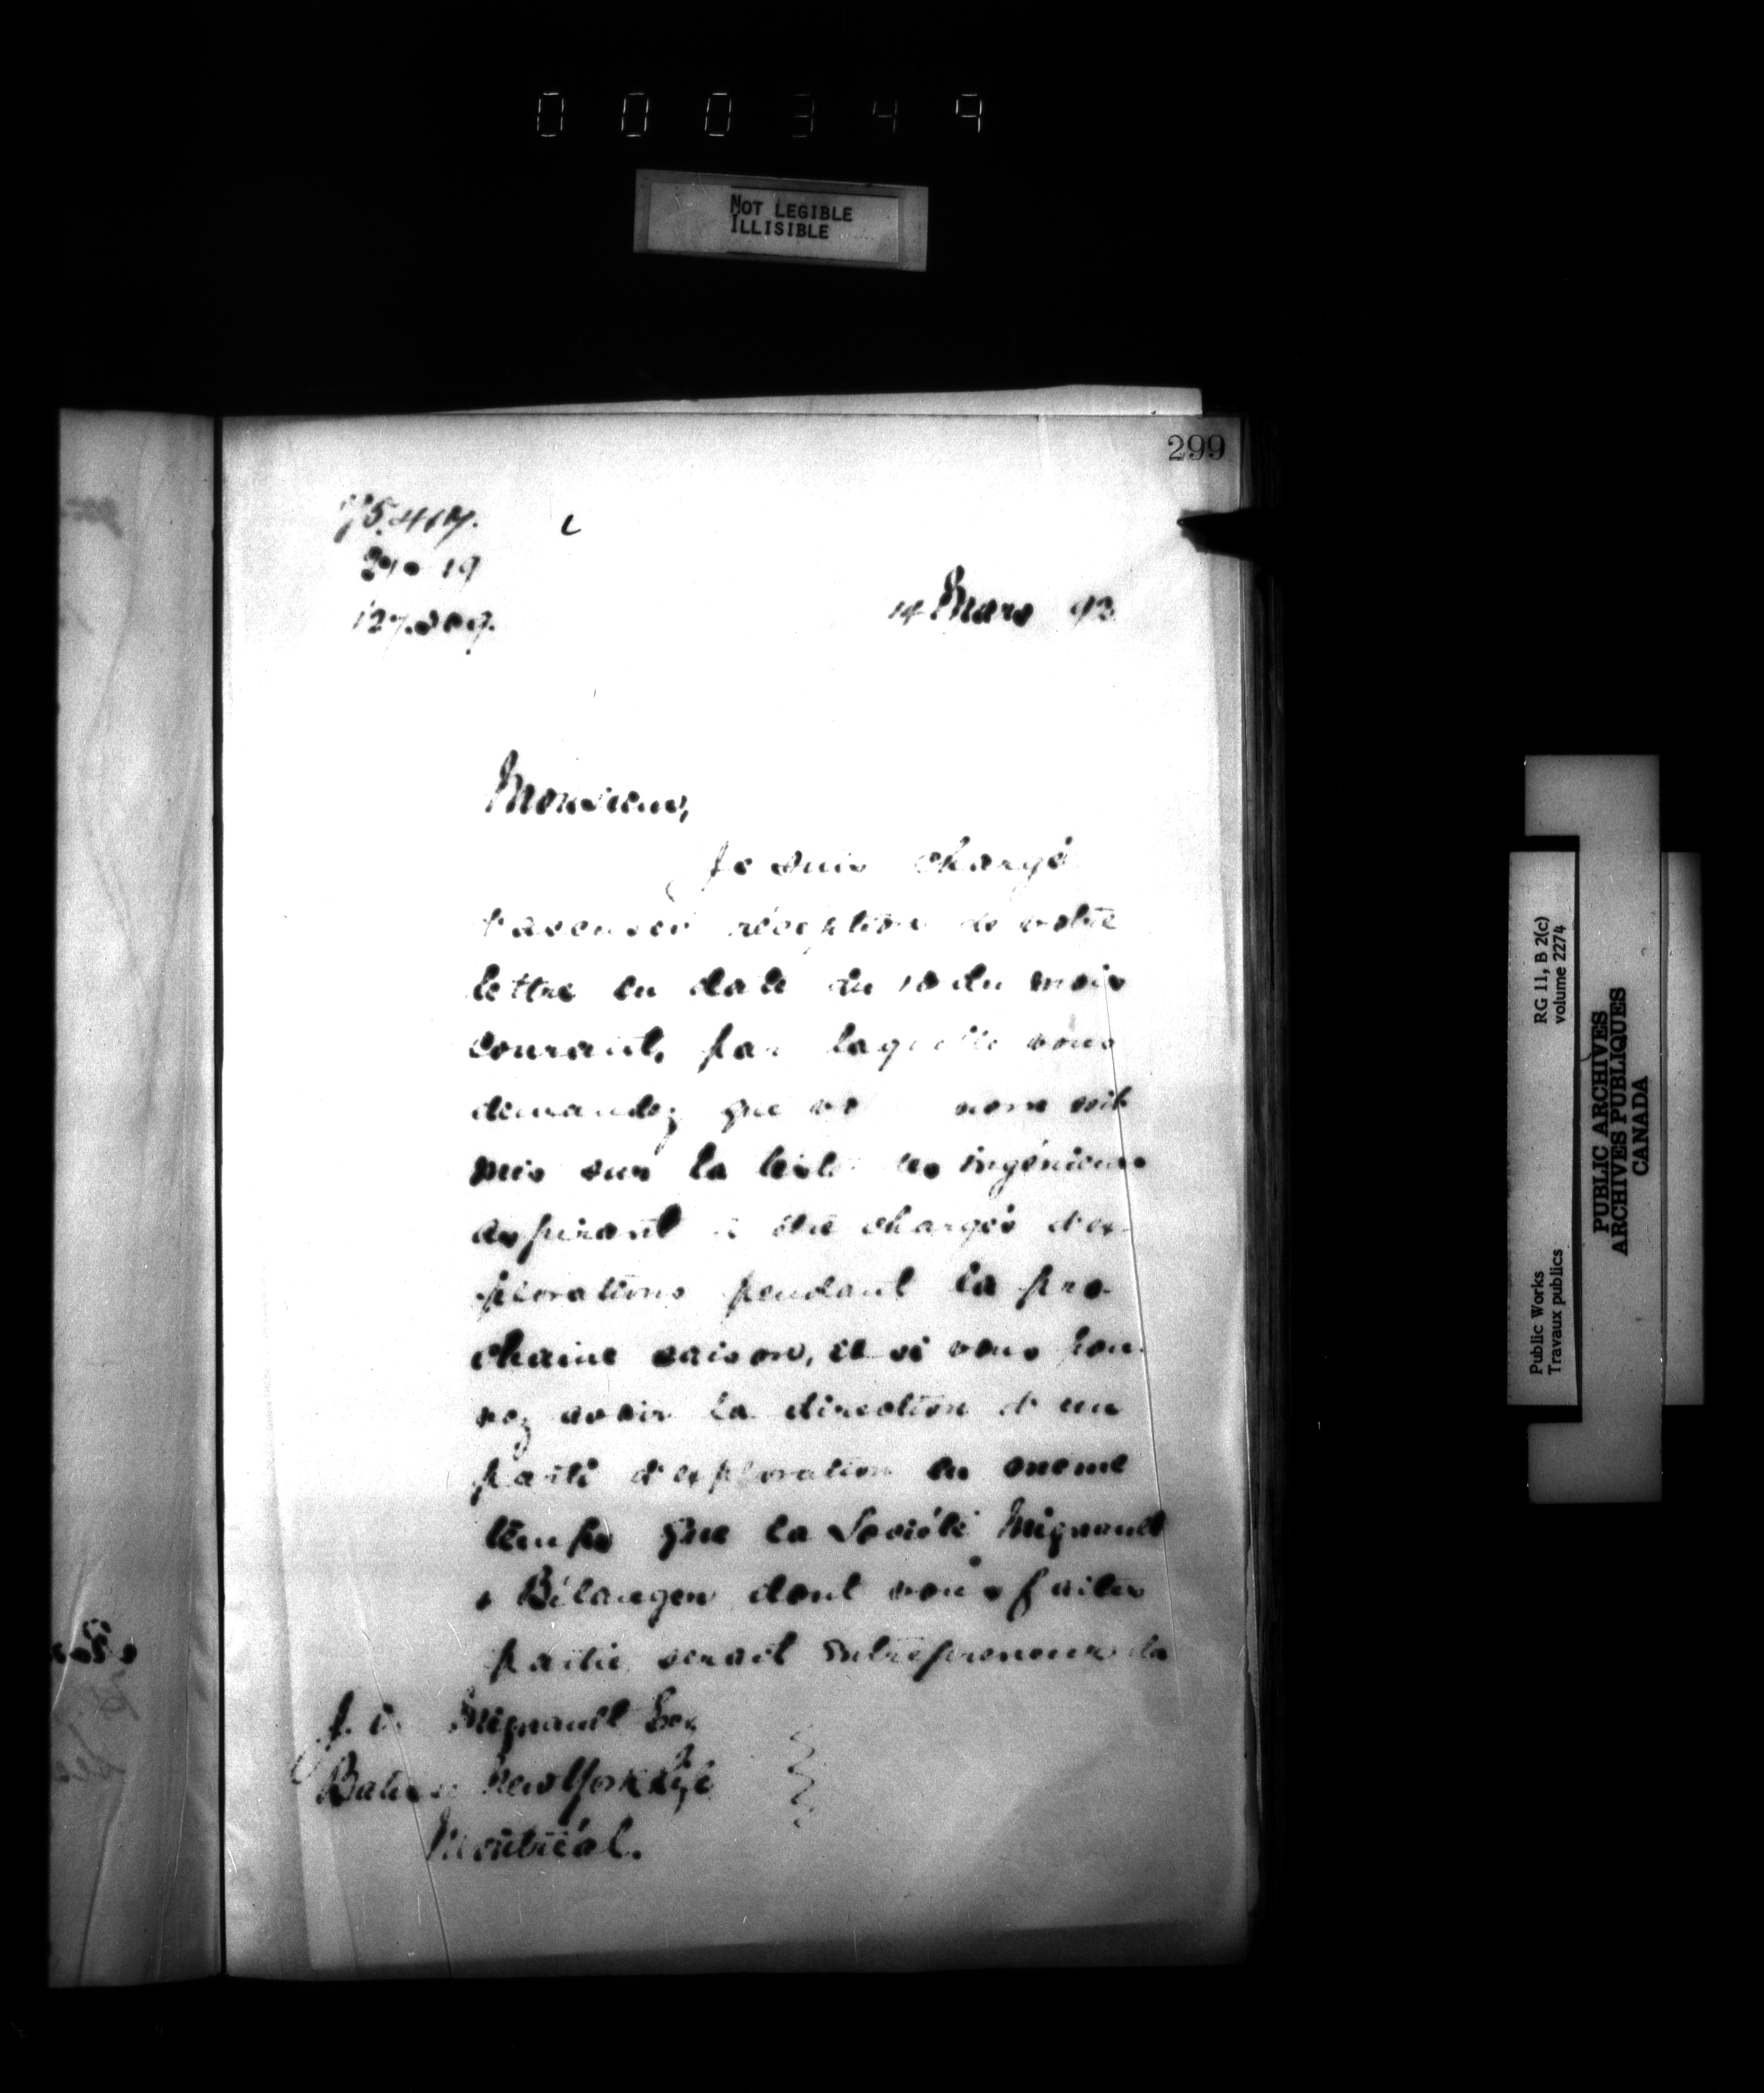 000349
NOT LEGIBLE
ILLISIBLE
299
14 Mars 93
Monsieur,
Je suis chargé
d'accuser réception de votre
lettre en date du 10 du mois
courant, par laquelle vous
demandez que nom soit
mis sur la liste des ingénieurs
aspirant à être chargés d'ex-
plorations pendant la pro-
chaine saison, et si vous pou-
vez avoir la direction d'un
parti d'exploration en même
temps que la Société Mignault
& Bélanger dont vous faites
partie serait entrepreneur de
Mignault
New York Life
Montréal.
Public Works
Travaux publics
RG 11, B 2(c)
volume 2274
PUBLIC ARCHIVES
ARCHIVES PUBLIQUES
CANADA